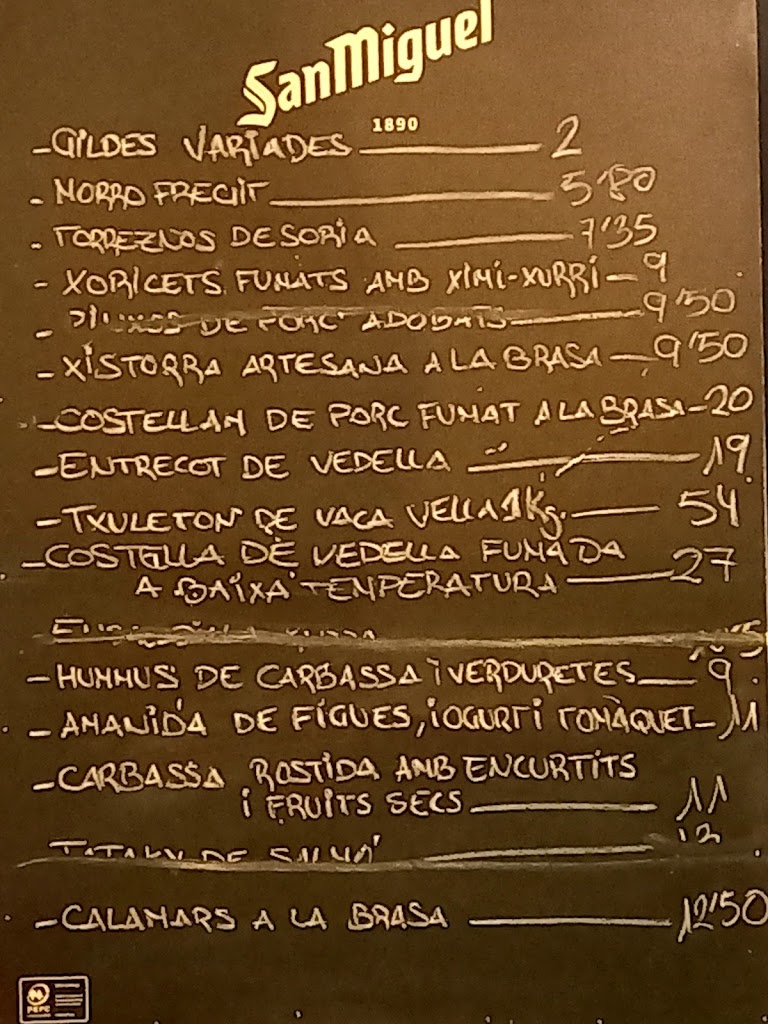 SanMiguel
1890
- GILDES VARIADES 2
- MORRO FREGIT 5'80
- TORREZNOS DE SORIA 7'35
- XORICETS FUMATS AMB XIMI-XURRI - 9
- DE PORC ADOBATS 9'50
- XISTORRA ARTESANA A LA BRASA - 9'50
- COSTELLAM DE PORC FUMAT A LA BRASA - 20
- ENTRECOT DE VEDELLA 19
- TXULETON DE VACA VELLA 1Kg. 54
- COSTELLA DE VEDELLA FUMADA
A BAIXA TEMPERATURA 27
- HUMMUS DE CARBASSA I VERDURETES 9
- AMANIDA DE FIGUES, IOGURT I TOMÀQUET - 11
- CARBASSA ROSTIDA AMB ENCURTITS
I FRUITS SECS 11
TATAKY DE SALMÓ
- CALAMARS A LA BRASA 12'50